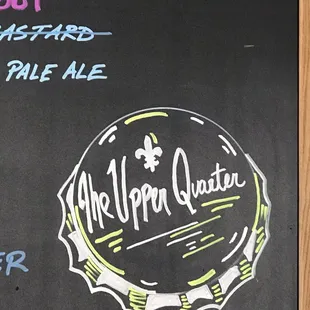 OUT
BASTARD
PALE ALE
The Upper Quarter
ER